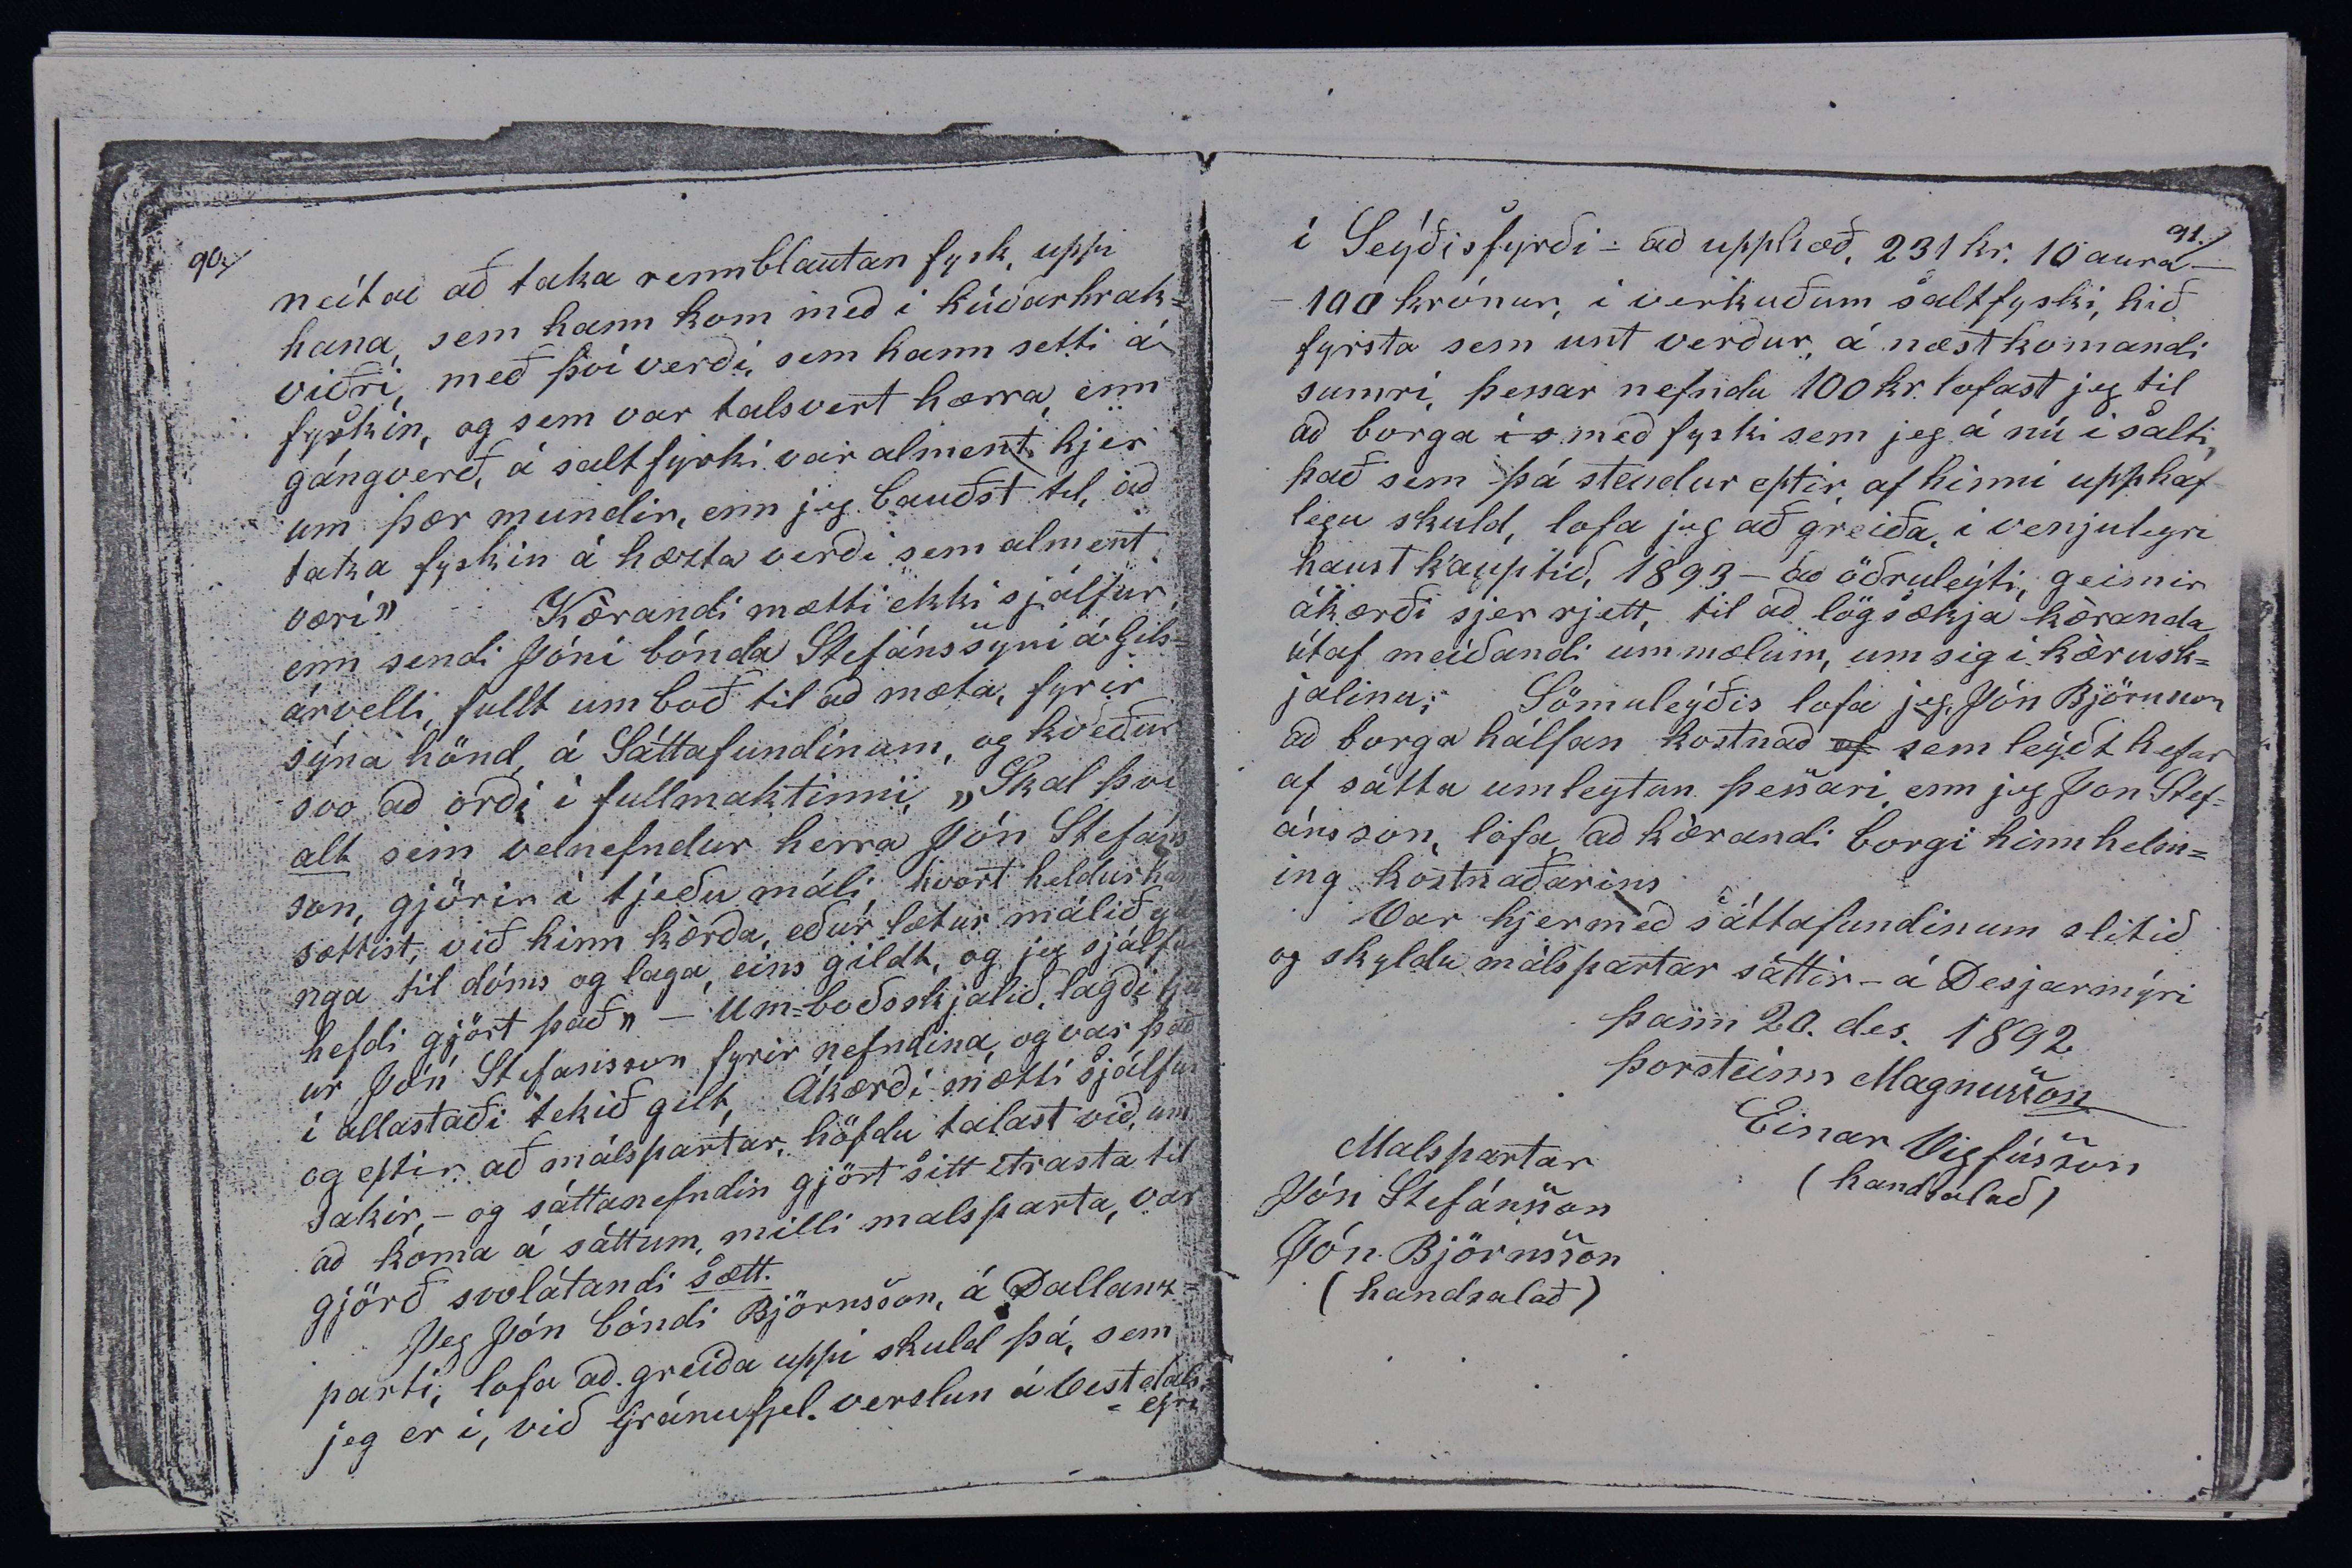 90./
neita að taka rennblautan fysk, uppi
hana, sem hann kom með i kúðarhrak=
viðri, með því verði, sem hann setti á
fyskin, og sem var talsvert hærra, enn
gángverð, á saltfyski var alment hjer
um þær mundir, enn jeg bauðst til, að
taka fyskin á hæzta verði sem alment
væri" Kærandi mætti ekki sjálfur,
enn sendi Jóni bónda Stefánssyni á Gils=
árvelli, fullt umboð til að mæta, fyrir
sýna hönd, á Sáttafundinum, og kveður
svo að orði i fullmaktinni, „Skal því
alt sem velnefndur herra Jón Stefáns
son, gjörir i tjeðu máli, hvort heldur hann
sættist, við hinn kærða, eður lætur málið
nga til dóms og laga, eins gildt, og jeg sjálfur
hefdi gjört það" – Um=boðsskjalið, lagði
ur Jón Stefansson fyrir nefndina, og var það
i allastaði tekið gilt, Ákærði mætti sjálfur
og eptir að málspartar, höfdu talast við, um
sakir, – og sáttanefndin gjört sitt itrasta til
að koma á sáttum, milli malsparta, var
gjörð svolátandi sætt.
Jeg Jón bóndi Björnsson, á Dallanz=
parti, lofa að greiða uppi skuld þá, sem
jeg er i, við Gránufjel. verslun á Vestdals=
=eyri
91./
i Seýðisfyrði – að upphæð, 231 kr. 10 aura –
– 100 krónur, i verkuðum saltfyski, hið
fyrsta sem unt verður, á næstkomandi
sumri, þessar nefndu 100 kr. lofast jeg til
að borga i s með fyski sem jeg á nú i salti,
það sem þá stendur eptir, af hinni upphaf
legu skuld, lofa jeg að greiða, i venjulegri
haust kauptíð, 1893 – að öðruleýti, geimir
ákærði sjer rjett, til að lögsækja kæranda
útaf meiðandi ummælum, um sig i kærusk=
jalinu; Sömuleýðis lofa jeg, Jón Björnsson
að borga hálfan kostnað af sem leýdt hefur
af sátta umleytan þessari, enn jeg Jon Stef=
ánsson, lofa, að kærandi borgi hinn helm=
ing kostnaðarins
Var hjermeð sáttafundinum slitið
og skyldu málspartar sáttir – á Desjarmýri
þann 20. des. 1892
Þorsteinn Magnusson
Einar Vigfússon
(handsalað)
Malspartar
Jón Stefánsson
Jón Björnsson
(handsalað)